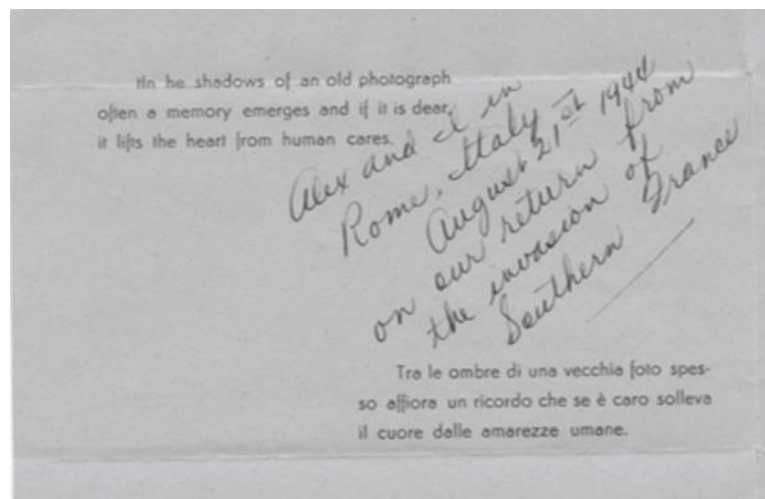 tIn he shadows of an old photograph
often a memory emerges and if it is dear,
it lifts the heart from human cares.
Alex and I in
Rome, Italy
August 21st 1944
on our return from
the invasion of
Southern France
Tra le ombre di una vecchia foto spes-
so affiora un ricordo che se è caro solleva
il cuore dalle amarezze umane.